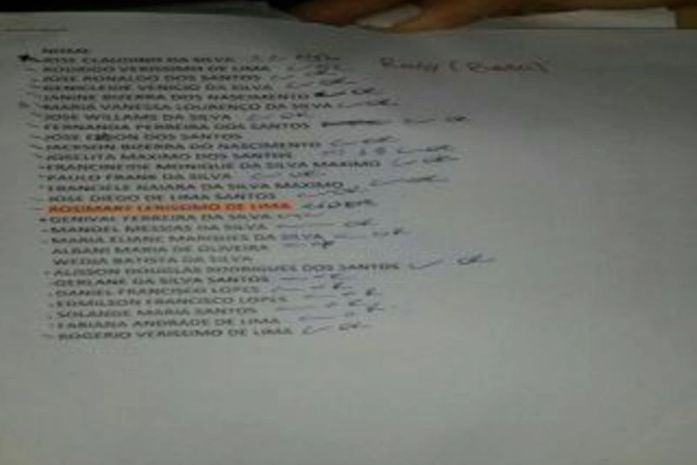 NOME
JOSE CLAUDINO DA SILVA
RODRIGO VERISSIMO DE LIMA
JOSE RONALDO DOS SANTOS OK
GENICLEIDE VENICIO DA SILVA OK
JANINE BIZERRA DOS NASCIMENTO OK
MARIA VANESSA LOURENÇO DA SILVA OK
JOSE WILLAMS DA SILVA OK
FERNANDA FERREIRA DOS SANTOS OK
JOSE DOS SANTOS
JACKSON BIZERRA DO NASCIMENTO OK
JOSELITA MAXIMO DOS SANTOS OK
FRANCINEIDE MONIQUE DA SILVA MAXIMO OK
PAULO FRANK DA SILVA OK
FRANCIELE NAIARA DA SILVA MAXIMO OK
JOSE DIEGO DE LIMA SANTOS
ROSIMARY VERISSIMO DE LIMA LIDER
GENIVAL FERREIRA DA SILVA
MANOEL MESSIAS DA SILVA OK
MARIA ELIANE MARQUES DA SILVA OK
ALBANI MARIA DE OLIVEIRA
WEDJA BATISTA DA SILVA
ALISSON DOUGLAS RODRIGUES DOS SANTOS OK
GERLANE DA SILVA SANTOS
DANIEL FRANCISCO LOPES
EDMILSON FRANCISCO LOPES
SOLANGE MARIA SANTOS
FABIANA ANDRADE DE LIMA
ROGERIO VERISSIMO DE LIMA OK